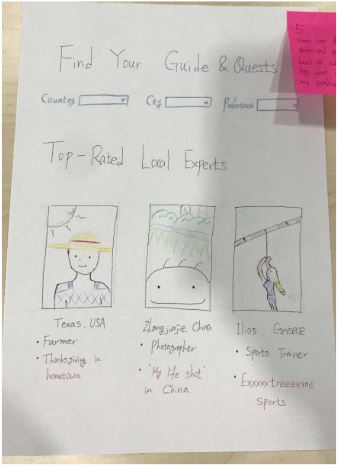 Find Your Guide & Quests
Country
City
Preference
Top-Rated Local Experts
Texas, USA
• Farmer
• Thanksgiving in
hometown
Zhangjiajie, China
• Photographer
• "My life shot"
in China
Ilios, Greece
• Sports Trainer
• Exxxxxtreeeeme
Sports
5